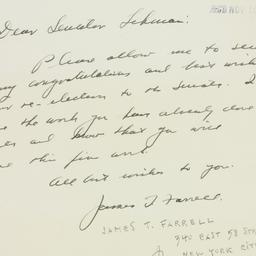 Dear Senator Lehman:
Please allow me to
my congratulations and best
re-election to the Senate.
the work you have already done
and know that you will
this fine work.
All best wishes to you.
James T. Farrell
JAMES T. FARRELL
340 EAST 58 STR
NEW YORK CITY